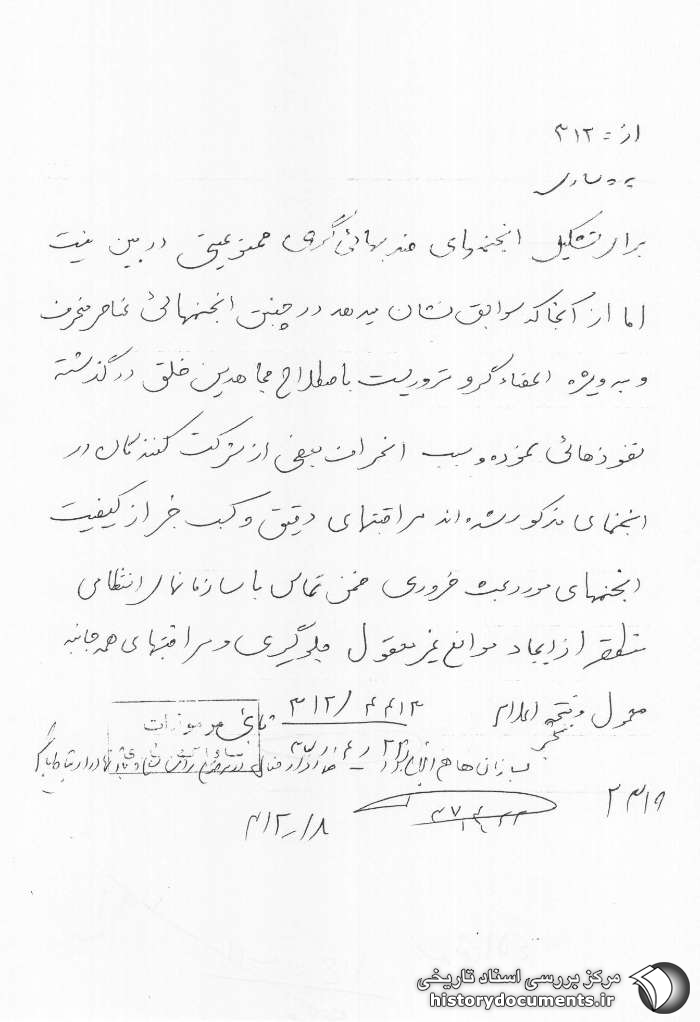 از = ۳۱۲
به ساری
برای تشکیل انجمنهای ضد بهائی‌گری ممنوعیتی در بین نیست
اما از آنجا که سوابق نشان میدهد در چنین انجمنهائی عناصر منحرف
و به ویژه اعضاء گروه تروریست باصطلاح مجاهدین خلق در گذشته
نفوذهائی نموده و سبب انحراف بعضی از شرکت کنندگان در
انجمنهای مذکور شده‌اند مراقبتهای دقیق و کسب خبر از کیفیت
انجمنهای مورد بحث ضروری ضمن تماس با سازمانهای انتظامی
منطقه از ایجاد موانع غیر معقول جلوگیری و مراقبتهای همه جانبه
معمول و نتیجه اعلام ۳۱۲/۴۴۱۳ ثابتی
مرموزات
۲۳۱۹
۳۱۲-۱/۸
مرکز بررسی اسناد تاریخی
historydocuments.ir